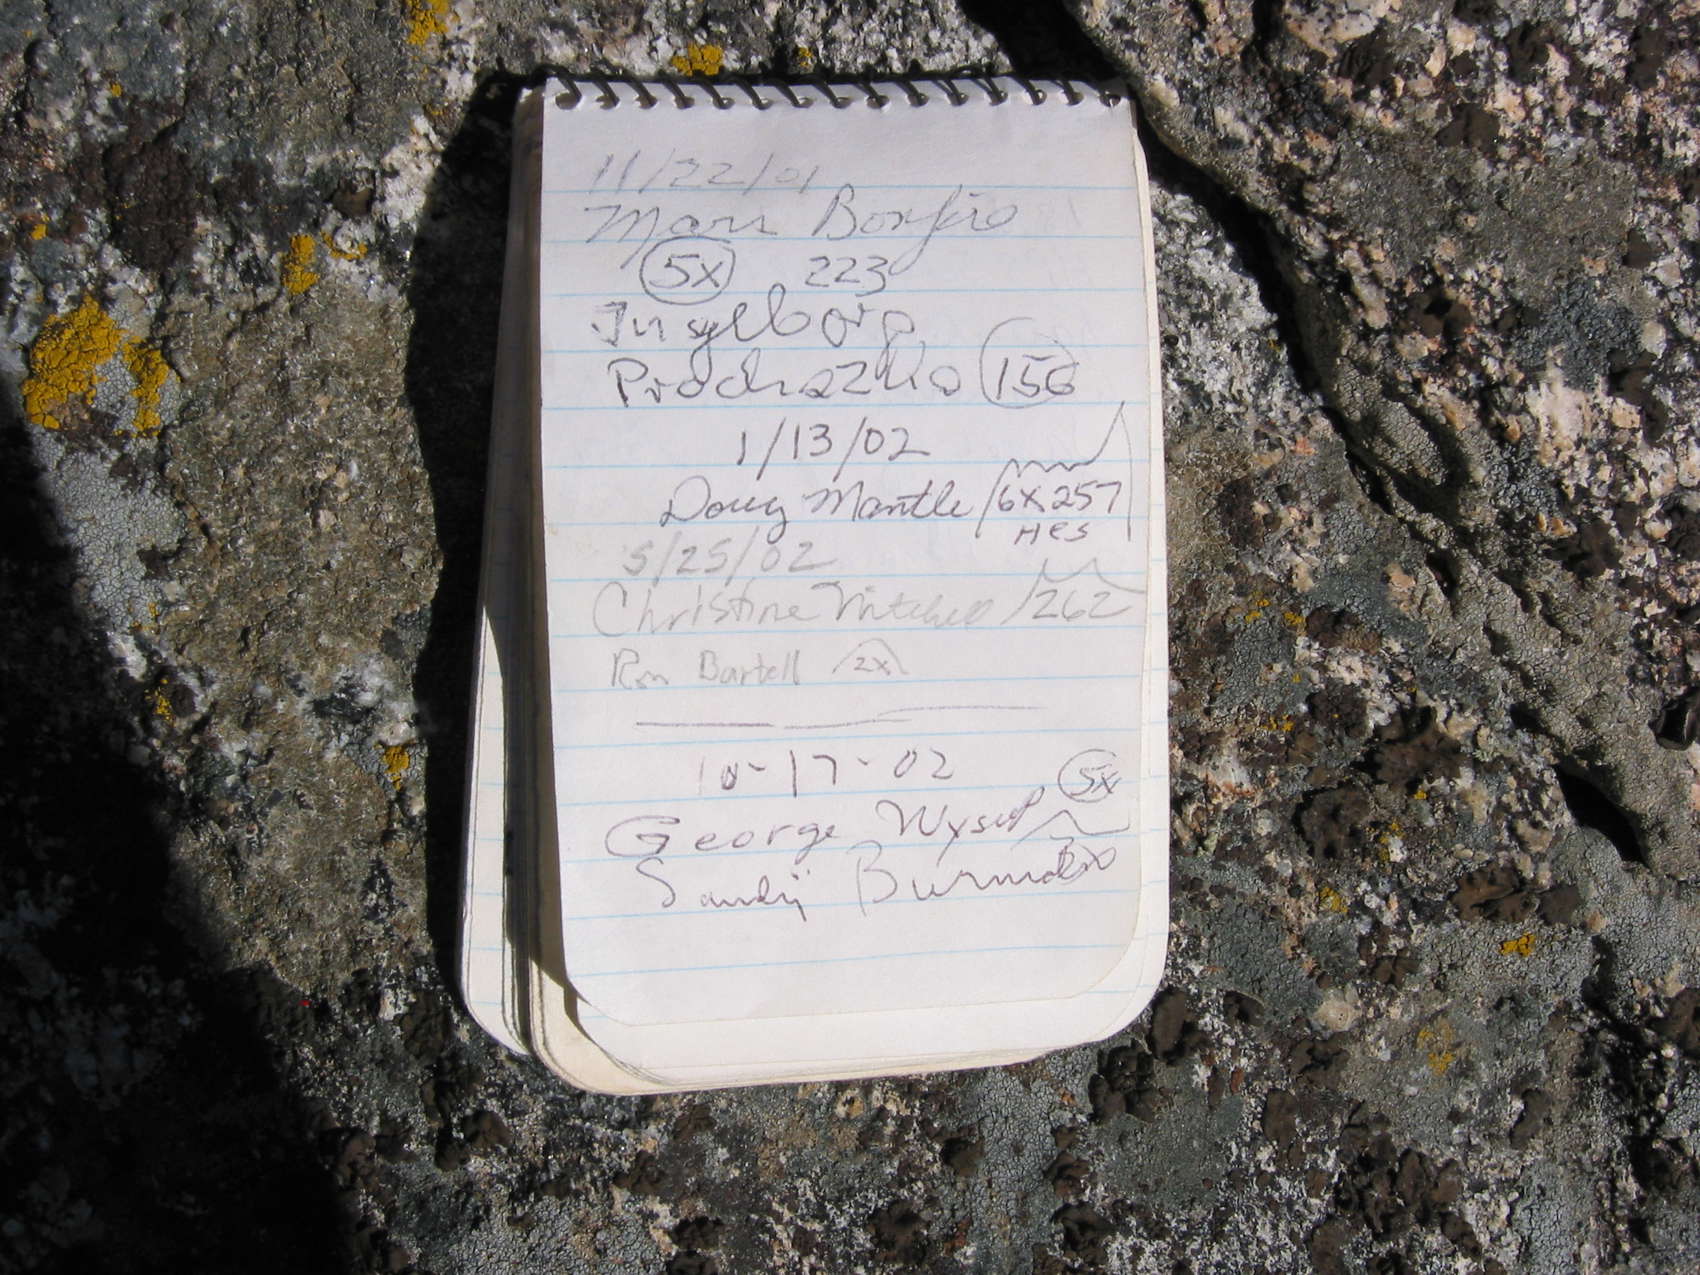 11/22/01
Mars Bonfire
5x 223
Ingeborg
Prochazka 156
1/13/02
Doug Mantle 6x257
HPS
5/25/02
Christine Mitchell 262
Ron Bartell 2x
10-17-02
5x
George Wysup
Sandy Burnside